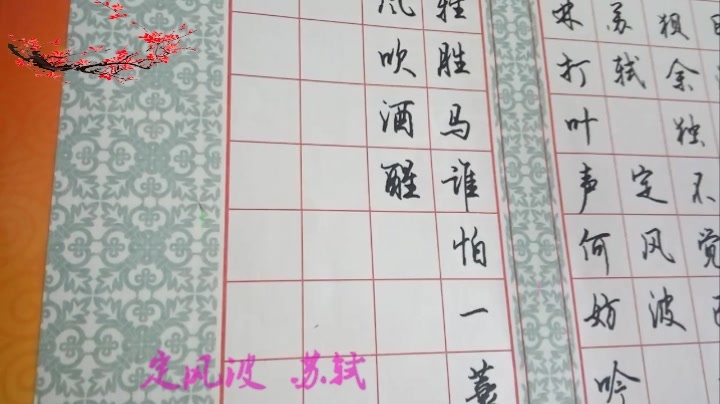 狈余独不觉
苏轼 定风波
林打叶声何妨吟
鞋胜马谁怕一蓑
风吹酒醒
定风波 苏轼